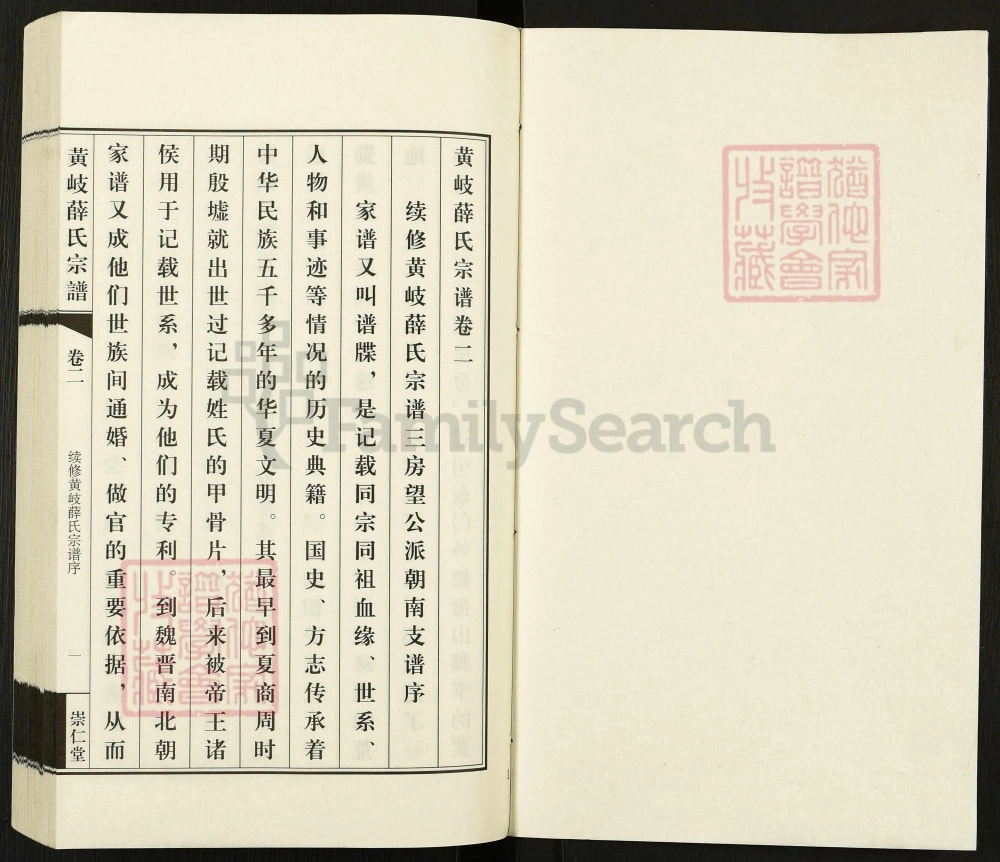 黄岐薛氏宗谱卷二
续修黄岐薛氏宗谱三房望公派朝南支谱序
家谱又叫谱牒，是记载同宗同祖血缘、世系、
人物和事迹等情况的历史典籍。国史、方志传承着
中华民族五千多年的华夏文明。其最早到夏商周时
期殷墟就出世过记载姓氏的甲骨片，后来被帝王诸
侯用于记载世系，成为他们的专利。到魏晋南北朝
家谱又成他们世族间通婚、做官的重要依据，从而
黄岐薛氏宗譜
卷二
续修黄岐薛氏宗谱序
一
崇仁堂
猶他家
譜學會
收藏
猶他家
譜學會
收藏
FamilySearch